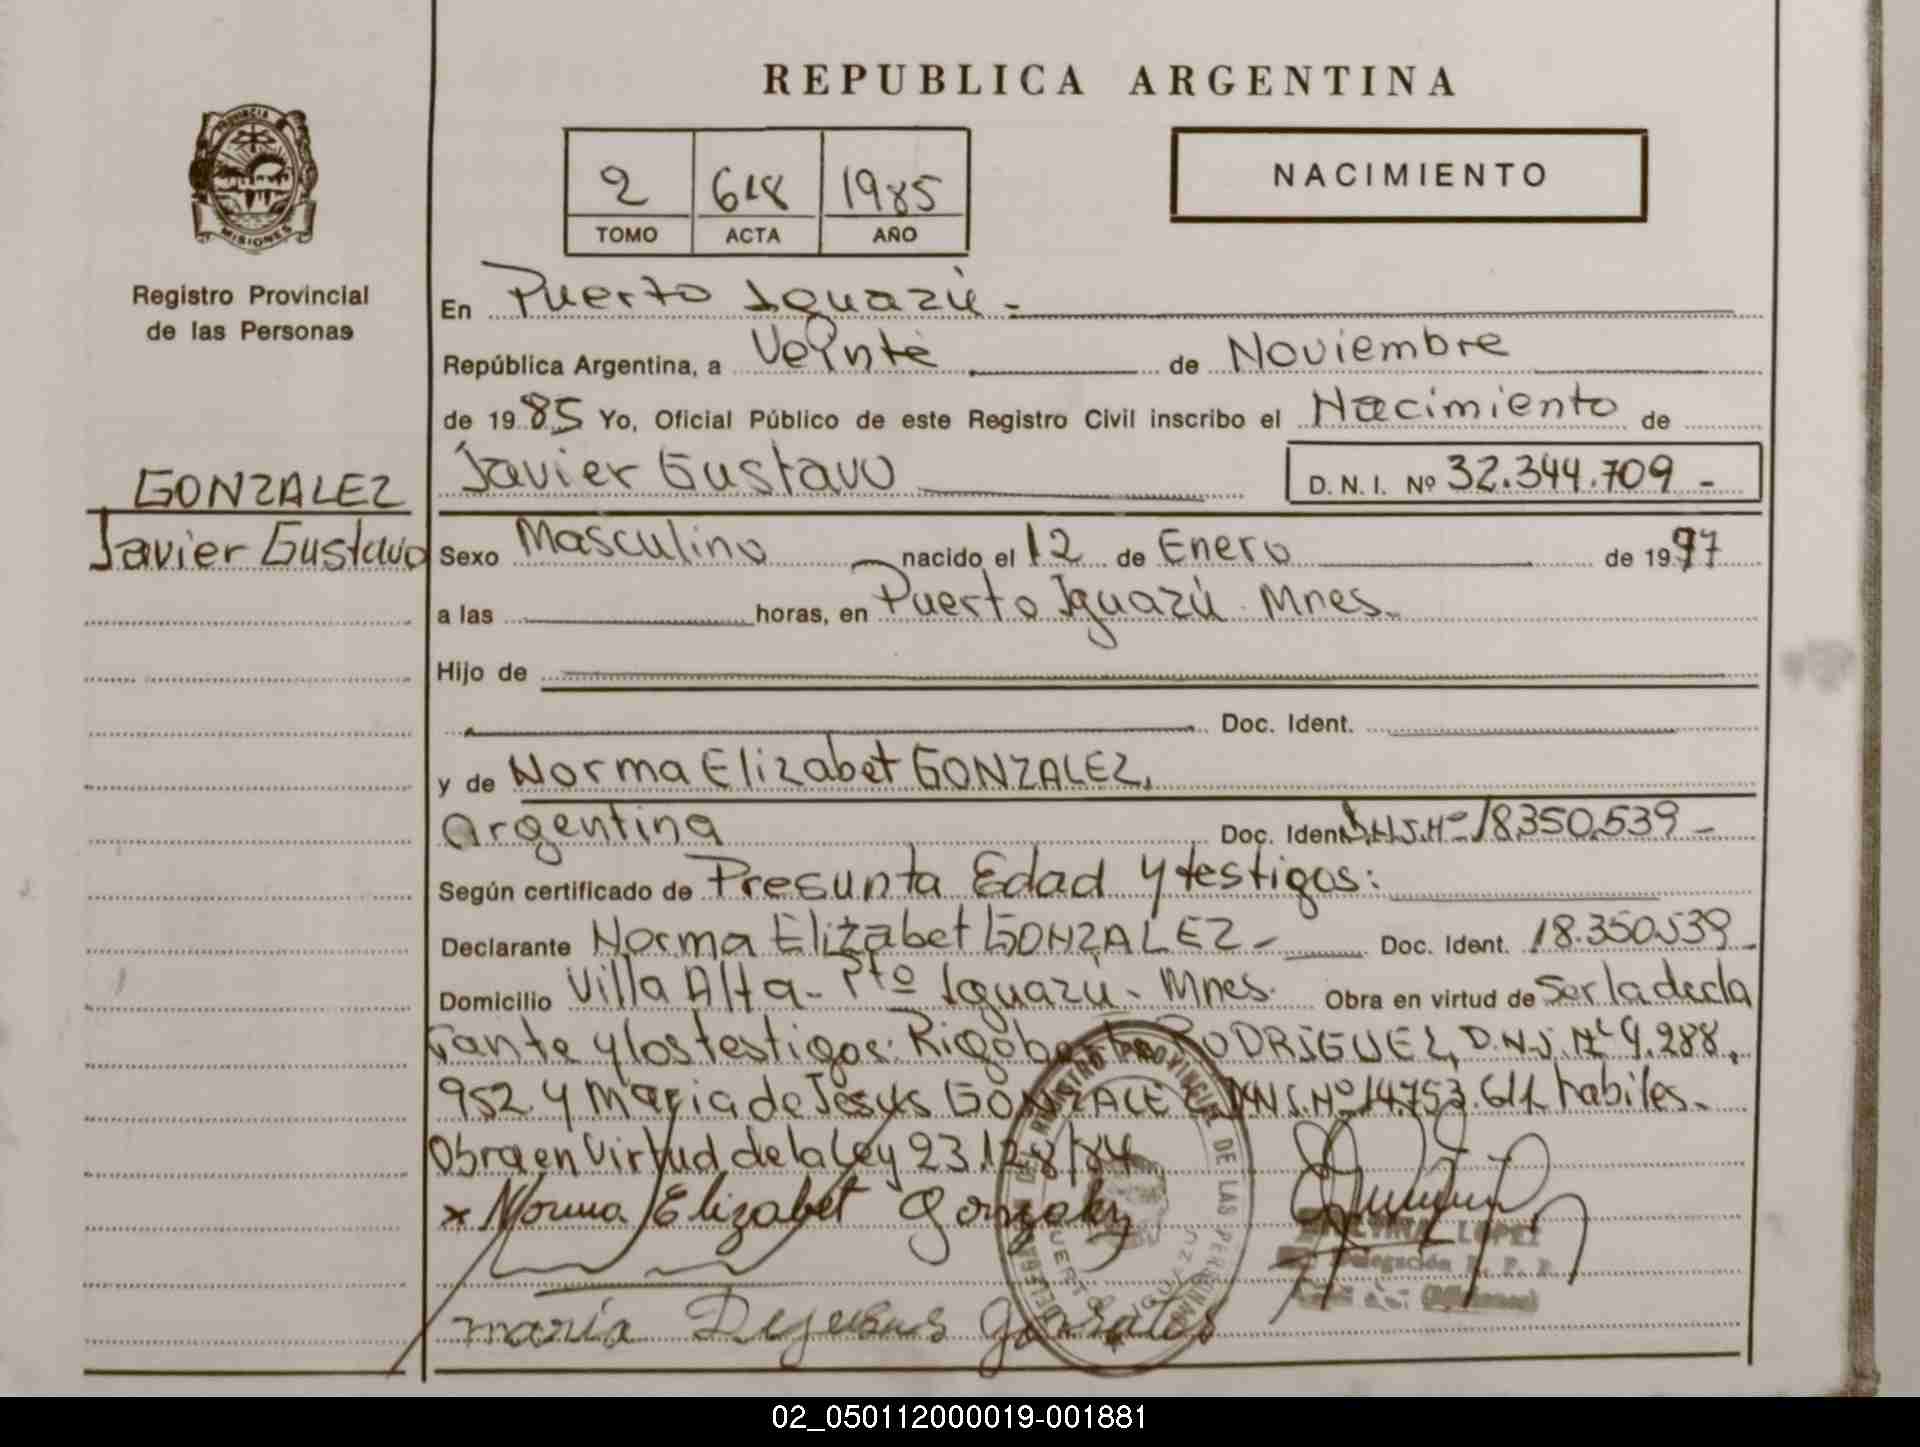 REPUBLICA ARGENTINA
PROVINCIA DE
MISIONES
Registro Provincial
de las Personas
2 618 1985
TOMO ACTA AÑO
NACIMIENTO
En Puerto Iguazú.-
República Argentina, a Veinte de Noviembre
de 1985 Yo, Oficial Público de este Registro Civil inscribo el Nacimiento de
GONZALEZ
Javier Gustavo
Javier Gustavo D. N. I. Nº 32.344.709 -
Sexo Masculino nacido el 12 de Enero de 1977
a las horas, en Puerto Iguazú. Mnes.
Hijo de
Doc. Ident.
y de Norma Elizabet GONZALEZ,
argentina Doc. Ident. D.N.I.Nº 18.350.539 -
Según certificado de Presunta Edad y testigos:
Declarante Norma Elizabet GONZALEZ - Doc. Ident. 18.350.539
Domicilio Villa Alta - Ptº Iguazú - Mnes. Obra en virtud de Ser la decla
rante y los testigos: Rigoberto RODRIGUEZ, D.N.I. Nº 9.288.
952 y Maria de Jesus GONZALEZ D.N.I. Nº 14.753.611 habiles.
Obra en Virtud de la Ley 23.128/84
x Norma Elizabet Gonzalez
maria Dejesus Gonsales
DEL REGISTRO PROVINCIAL DE LAS PERSONAS
PUERTO IGUAZU
LOPEZ
Delegación R. P. P.
(Misiones)
02_050112000019-001881